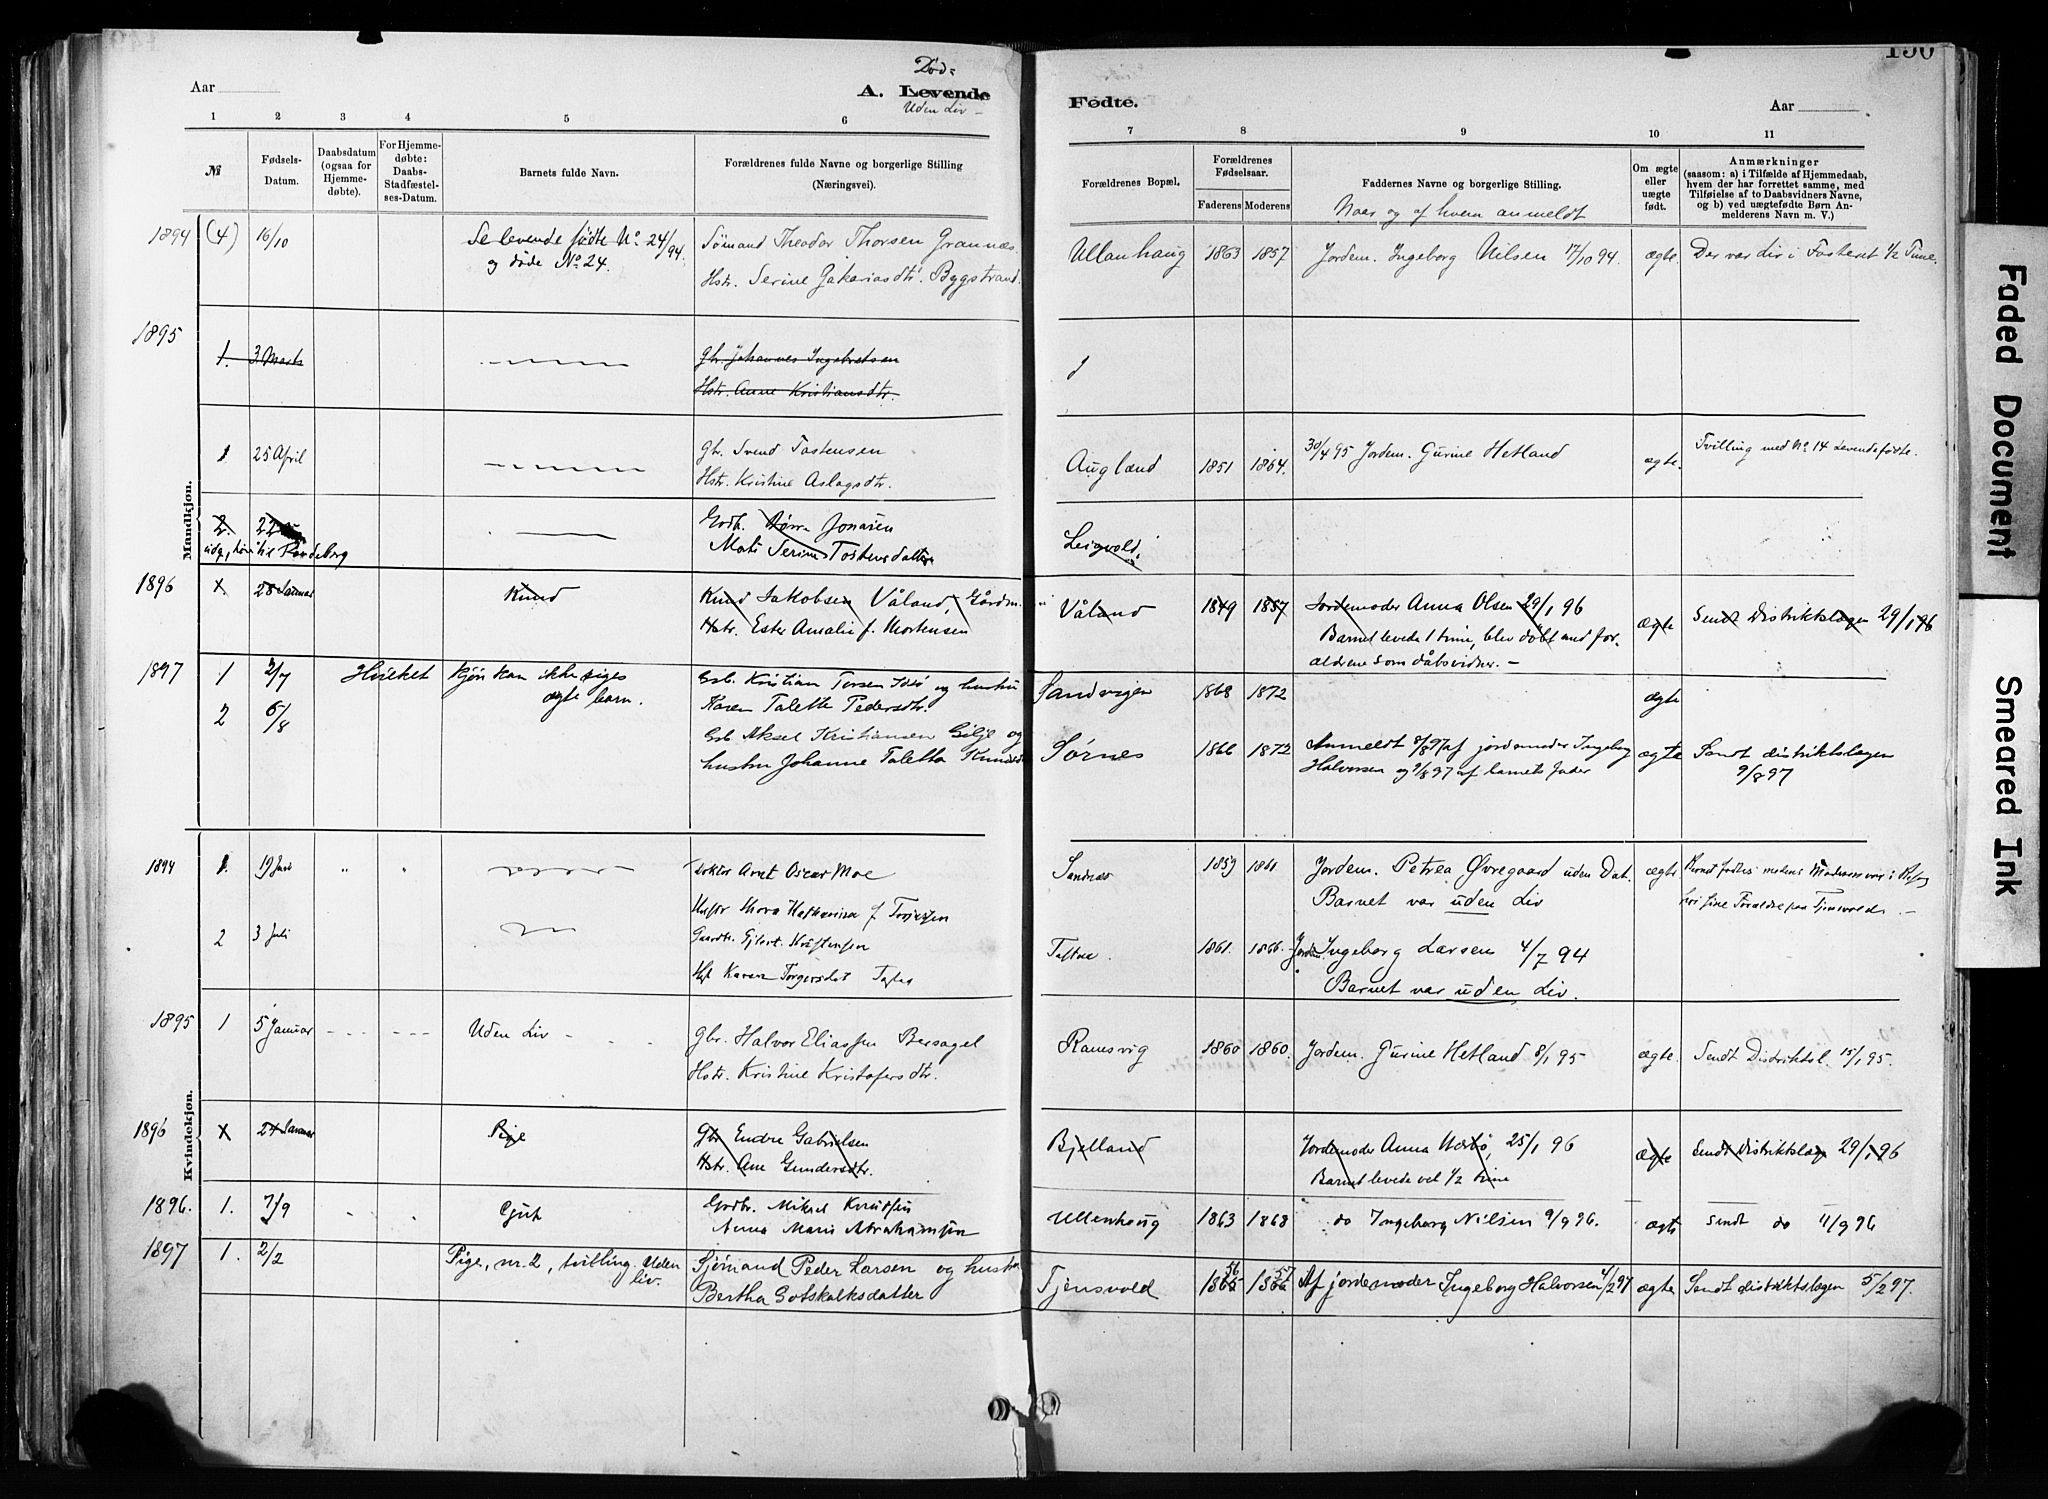 Aar
Død-
A. Levende
Uden Liv -
Fødte.
150
Aar
1 2 3 4 5 6 7 8 9 10 11
№
Fødsels-Datum.
Daabsdatum (ogsaa for Hjemmedøbte).
For Hjemmedøbte: Daabs-Stadfæstelses-Datum.
Barnets fulde Navn.
Forældrenes fulde Navne og borgerlige Stilling (Næringsvei).
Forældrenes Bopæl.
Forældrenes Fødselsaar.
Faderens Moderens
Faddernes Navne og borgerlige Stilling.
Naar og af hvem anmeldt
Om ægte eller uægte født.
Anmærkninger
(saasom: a) i Tilfælde af Hjemmedaab, hvem der har forrettet samme, med Tilføielse af to Daabsvidners Navne, og b) ved uægtefødte Børn Anmelderens Navn m. V.)
Mandkjøn.
1894 (4) 16/10 Se levende fødte No. 24/94 Sømand Theodor Thorsen Grannæs Ullanhaug 1863 1857 Jordem. Ingeborg Nilsen 17/10 94. ægte. Der var Liv i Fosteret 1/2 Time.
og døde No. 24. Hstr. Serine Zakariasdtr. Bygstrand.
1895
1. 3 Marts Gbr. Johannes Ingebretsen
Hstr. Anne Kristiansdtr.
1. 25 April Gbr. Svend Tostensen Augland 1851 1864. 30/4 95 Jordem. Gurine Hetland ægte. Tvilling med No. 14 Levendefødte.
Hstr. Kristine Aslagsdtr.
2. 22 Gdbr. Jonasen
Serine Tostensdatter
1896 x. 28 Januar Knud Knud Jakobsen Våland, Gårdm. Våland 1849 1857 Jordemoder Anna Olsen 29/1 96 ægte Sendt Distriktslægen 29/1 96
Hstr. Ester Amalie f. Mortensen Barnet levede 1 time, blev døbt med for-
ældrene som dåbsvidner. -
1897 1 2/7 Hviket kjøn kan ikke siges Kristian Torsen og hustru Sandvigen 1868 1872 ægte
ægte barn. Karen Talette Pedersdtr.
2 5/8 Aksel Kristiansen Gilje og Sørnes 1866 1872 Anmeldt 8/8 97 af jordemoder Ingeborg ægte Sendt distriktslægen
hustru Johanne Taletta Halvorsen og 9/8 97 af barnets fader 9/8 97
Kvindekjøn.
1894 1. 19 Juni " " Doktor Arnt Oscar Moe Sandnes 1859 1861 Jordem. Petrea Øvregaard uden Dat. ægte
Barnet var uden Liv
2 3 Juli 1861. 1866. Jordm. Ingeborg Larsen 4/7 94
Barnet var uden Liv.
1895 1 5 Januar Uden Liv Gbr. Halvor Eliassen Bersagel Ramsvig 1860 1860. Jordem. Gurine Hetland 8/1 95 ægte. Sendt Distriktsl. 15/1 95.
Hstr. Kristine Kristofersdtr.
1896 x 24 Januar Pige Gbr Endre Gabrielsen Bjelland Jordemoder Anna 25/1 96 ægte Sendt Distriktslæg 29/1 96
Hstr. Ane Gundersdtr. Barnet levede vel 1/2 time
1896. 1. 7/9 Gut Gårdbr. Mikael Knutsen Ullenhoug 1863 1868 do Ingeborg Nilsen 9/9 96. ægte sendt do 11/9 96
Anna Marie Abrahamsen
1897 1. 2/2 Pige, nr. 2, tvilling. Uden Sjømand Peder Larsen og hustru Tjensvold 1865 56 1866 57 Af jordemoder Ingeborg Halvorsen 4/2 97 ægte Sendt distriktslægen 5/2 97.
liv. Bertha Gotskalksdatter
Faded Document
Smeared Ink